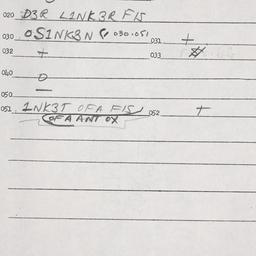 020 D3R L1NK3R F1S
030 OS1NK3N 030.051 031 +
032 + 033 #
040 O
050 —
051 1NK3T OF A F1S 052 +
OF A ANT OX